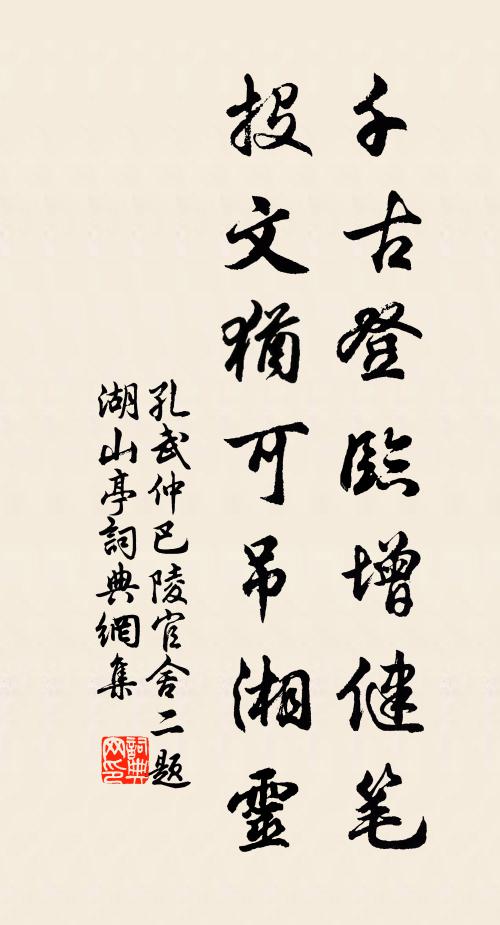 千古登臨增健笔
投文猶可吊湘靈
孔武仲巴陵官舍二题
湖山亭詞典網集
詞典网印